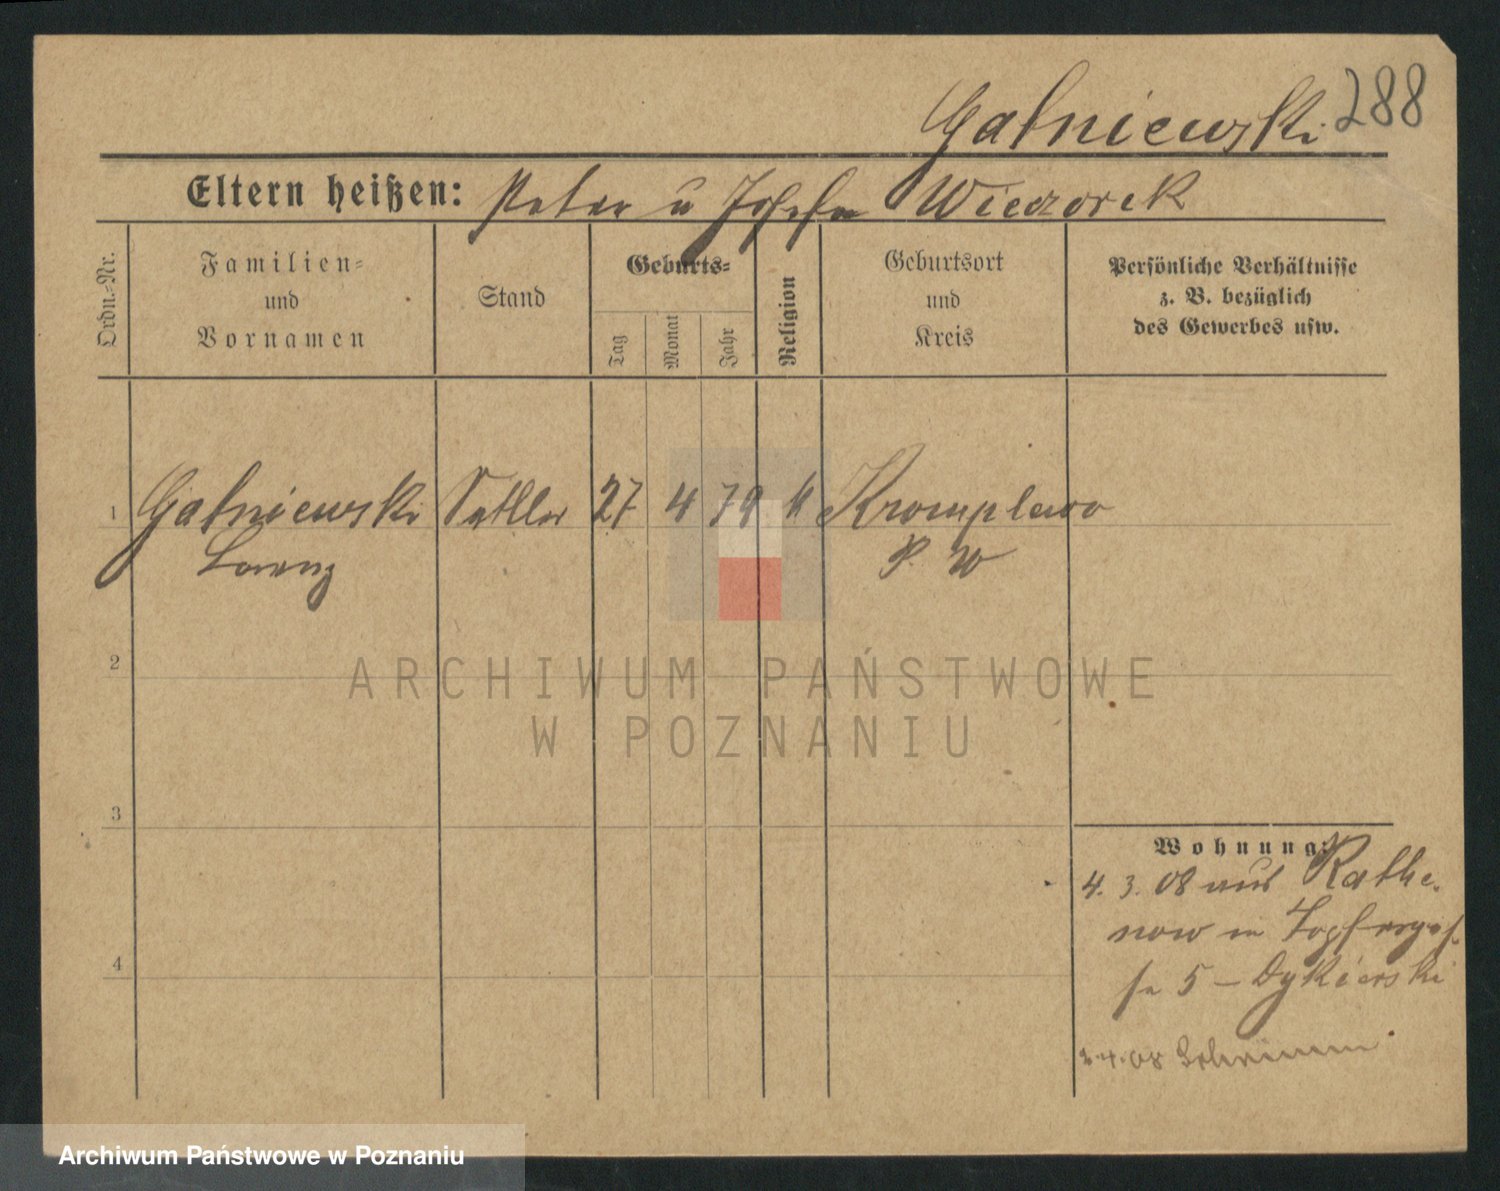 Gatniewski 288
Eltern heißen: Peter u Josefa Wieczorek
Ordn.-Nr.
Familien-
und
Vornamen
Stand
Geburts-
Tag
Monat
Jahr
Religion
Geburtsort
und
Kreis
Persönliche Verhältnisse
z. B. bezüglich
des Gewerbes usw.
1 Gatniewski Sattler 27 4 79 k Kromplewo
Lorenz P. W
2
3
4
Wohnung:
4. 3. 08 aus Rathe-
now in Töpfergas-
se 5 – Dykierski
2.4.08 Schrimm
ARCHIWUM PAŃSTWOWE
W POZNANIU
Archiwum Państwowe w Poznaniu